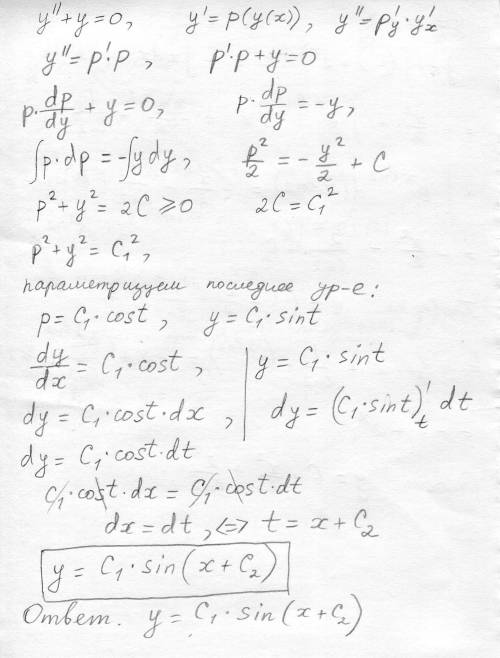 y''+y=0, y'=p(y(x)), y''=p'_y·y'_x
y''=p'·p, p'·p+y=0
p·dp/dy+y=0, p·dp/dy=-y,
∫p·dp=-∫ydy, p²/2=-y²/2+C
p²+y²=2C≥0 2C=C₁²
p²+y²=C₁²,
параметризуем последнее ур-е:
p=C₁·cost, y=C₁·sint
dy/dx=C₁·cost, | y=C₁·sint
dy=C₁·cost·dx, | dy=(C₁·sint)'_t dt
dy=C₁·cost·dt
C₁·cost·dx=C₁·cost·dt
dx=dt,⇔ t=x+C₂
y=C₁·sin(x+C₂)
Ответ. y=C₁·sin(x+C₂)